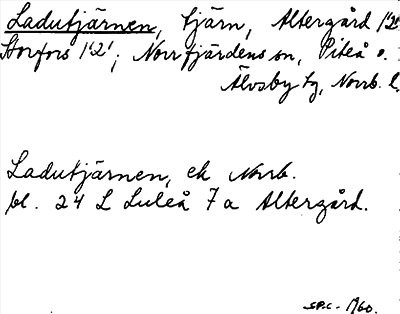 Ladutjärnen, tjärn, Altergård 1'2'
Storfors 1'2'; Norrfjärdens sn, Piteå o.
Älvsby tg, Norrb. l.
Ladutjärnen, ek Norrb.
bl. 24 L Luleå 7a Altergård.
1960.